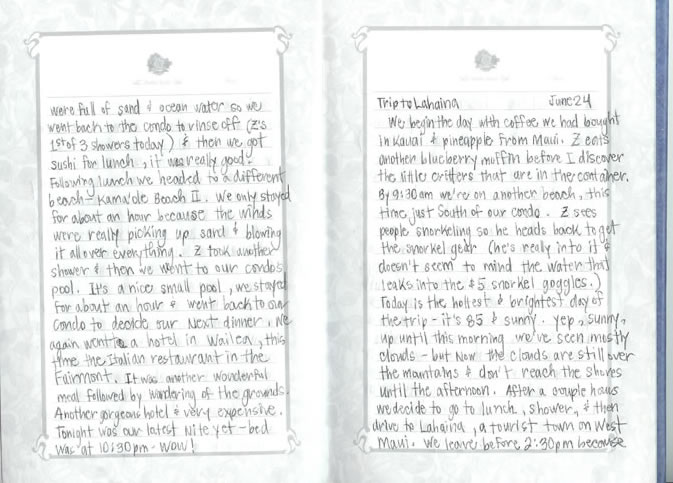 were full of sand & ocean water so we
went back to the condo to rinse off (Z's
1st of 3 showers today) & then we got
sushi for lunch, it was really good.
Following lunch we headed to a different
beach - Kama'ole Beach II. We only stayed
for about an hour because the winds
were really picking up sand & blowing
it all over everything. Z took another
shower & then we went to our condos
pool. It's a nice small pool, we stayed
for about an hour & went back to our
condo to decide our next dinner. We
again went to a hotel in Wailea, this
time the Italian restaurant in the
Fairmont. It was another wonderful
meal followed by wandering of the grounds.
Another gorgeous hotel & very expensive.
Tonight was our latest nite yet - bed
was at 10:30pm - WOW!
Trip to Lahaina June 24
We begin the day with coffee we had bought
in Kauai & pineapple from Maui. Z eats
another blueberry muffin before I discover
the little critters that are in the container.
By 9:30am we're on another beach, this
time just South of our condo. Z sees
people snorkeling so he heads back to get
the snorkel gear (he's really into it &
doesn't seem to mind the water that
leaks into the $5 snorkel goggles.)
Today is the hottest & brightest day of
the trip - it's 85 & sunny. yep, sunny,
up until this morning we've seen mostly
clouds - but now the clouds are still over
the mountains & don't reach the shores
until the afternoon. After a couple hours
we decide to go to lunch, shower, & then
drive to Lahaina, a tourist town on West
Maui. We leave before 2:30pm because